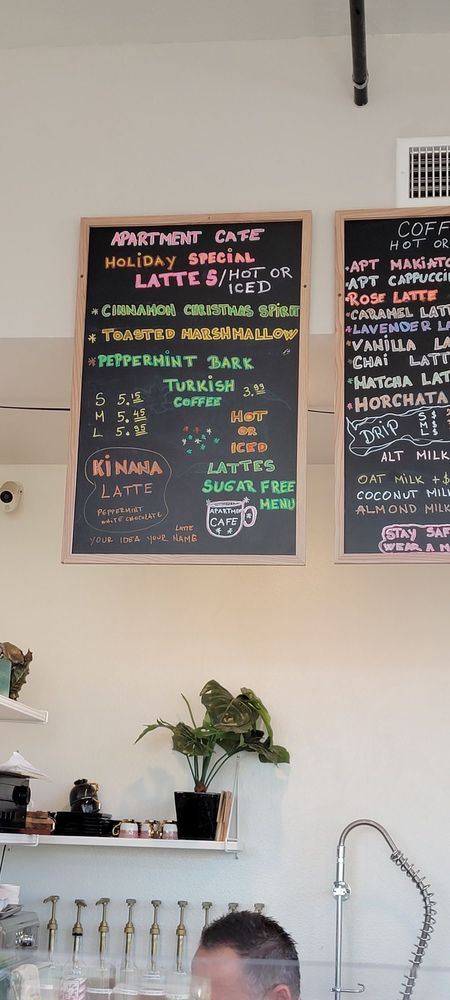 APARTMENT CAFE
HOLIDAY SPECIAL
LATTES/HOT OR
ICED
* CINNAMON CHRISTMAS SPIRIT
* TOASTED MARSHMALLOW
* PEPPERMINT BARK
TURKISH
COFFEE 3.99
S 5.15
M 5.45
L 5.95
HOT
OR
ICED
LATTES
SUGAR FREE
MENU
KiNANA
LATTE
PEPPERMINT
WHITE CHOCOLATE
APARTMENT
CAFE
YOUR IDEA YOUR LATTE NAME
COFF
HOT OR
APT MAKIATO
APT CAPPUCCI
ROSE LATTE
CARAMEL LATT
LAVENDER LA
VANILLA LA
CHAI LATT
MATCHA LAT
HORCHATA
DRIP S $
M $
L $
ALT MILK
OAT MILK +$
COCONUT MILK
ALMOND MILK
STAY SAF
WEAR A M